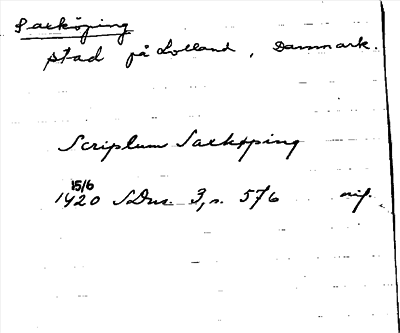 Saxköping
stad på Lolland, Danmark.
Scriptum Saxköping
15/6
1420 SDns 3, s. 576